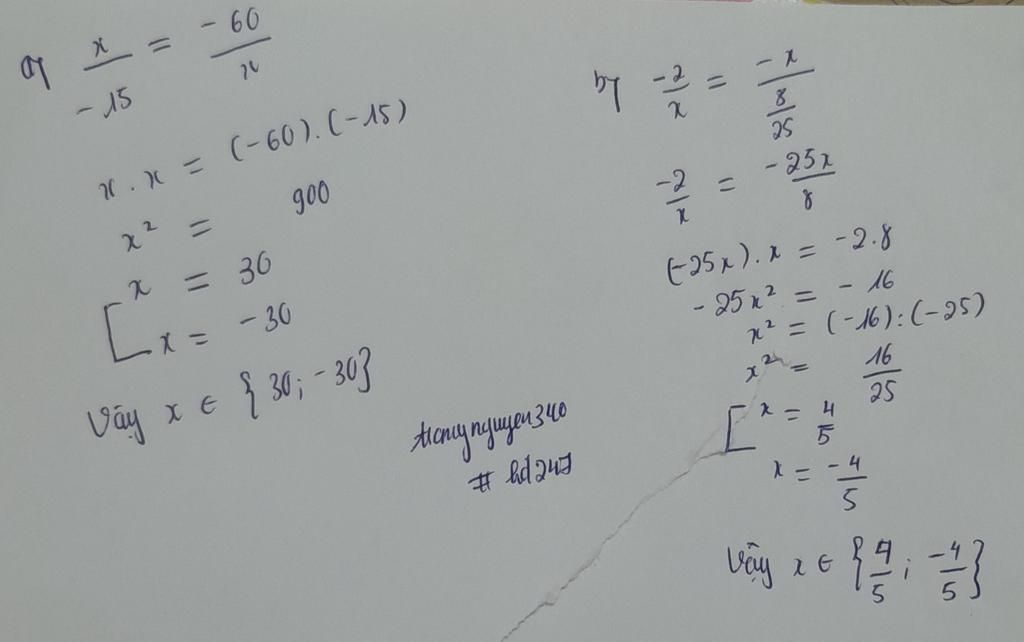 a) x/-15 = -60/x
x . x = (-60) . (-15)
x² = 900
[ x = 30
x = -30
Vậy x ∈ {30; -30}
b) -2/x = -x/(8/25)
-2/x = -25x/8
(-25x) . x = -2.8
-25x² = -16
x² = (-16) : (-25)
x² = 16/25
[ x = 4/5
x = -4/5
Vậy x ∈ {4/5; -4/5}
# hd247